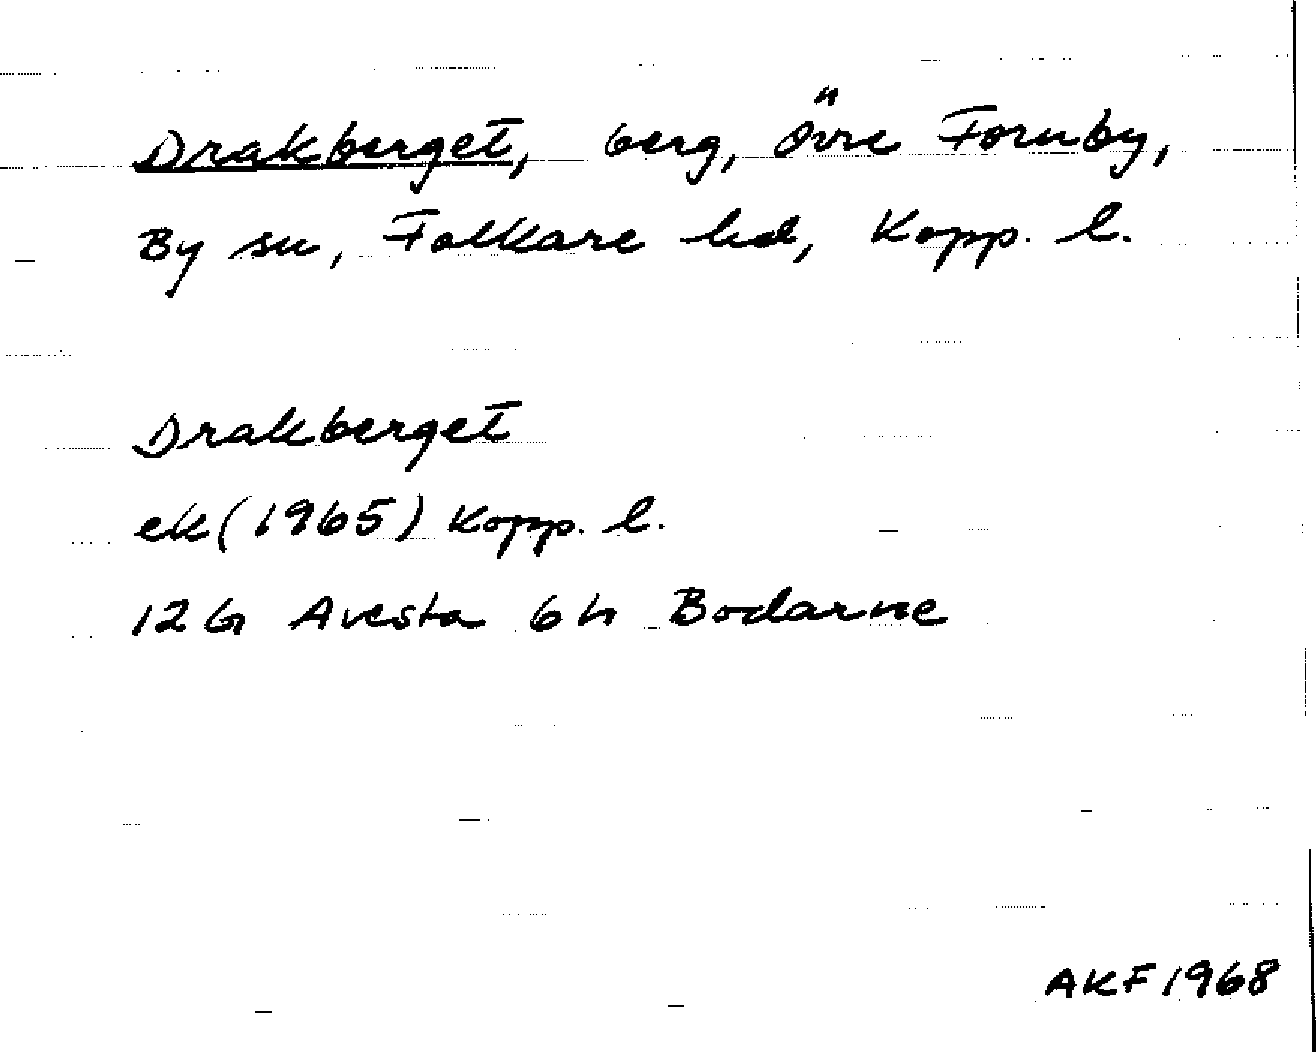 Drakberget, berg, Övre Fornby,
By sn, Folkare hd, Kopp. l.
Drakberget
ek (1965) Kopp. l.
12G Avesta 6h Bodarne
AKF 1968